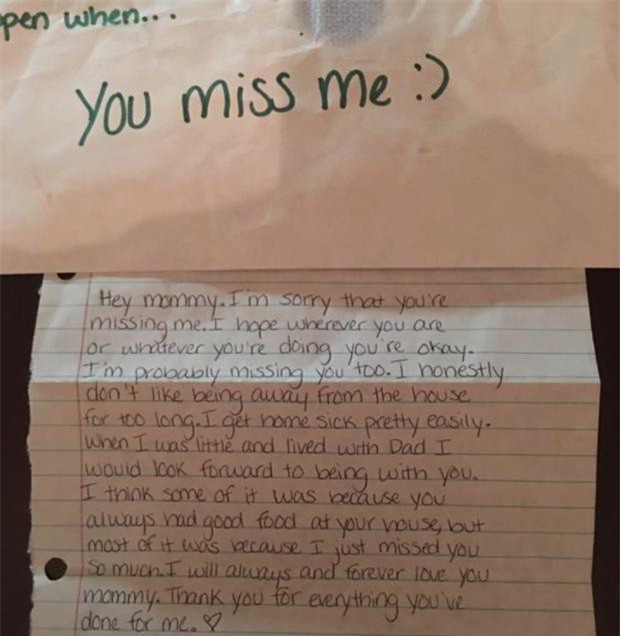 pen when...
You miss me :)
Hey mommy. I'm sorry that you're
missing me. I hope wherever you are
or whatever you're doing you're okay.
I'm probably missing you too. I honestly
don't like being away from the house
for too long. I get home sick pretty easily.
When I was little and lived with Dad I
would look forward to being with you.
I think some of it was because you
always had good food at your house, but
most of it was because I just missed you
so much. I will always and forever love you
mommy. Thank you for everything you've
done for me. ♡